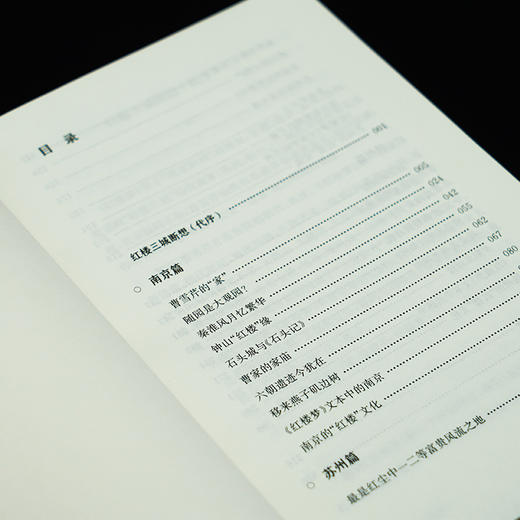 目 录
红楼三城断想（代序） 001
○ 南京篇
曹雪芹的“家” 005
随园是大观园？ 024
秦淮风月忆繁华 042
钟山“红楼”缘 055
石头城与《石头记》 062
曹家的家庙 067
六朝遗迹今犹在 080
移来燕子矶边树
《红楼梦》文本中的南京
南京的“红楼”文化
○ 苏州篇
最是红尘中一二等富贵风流之地